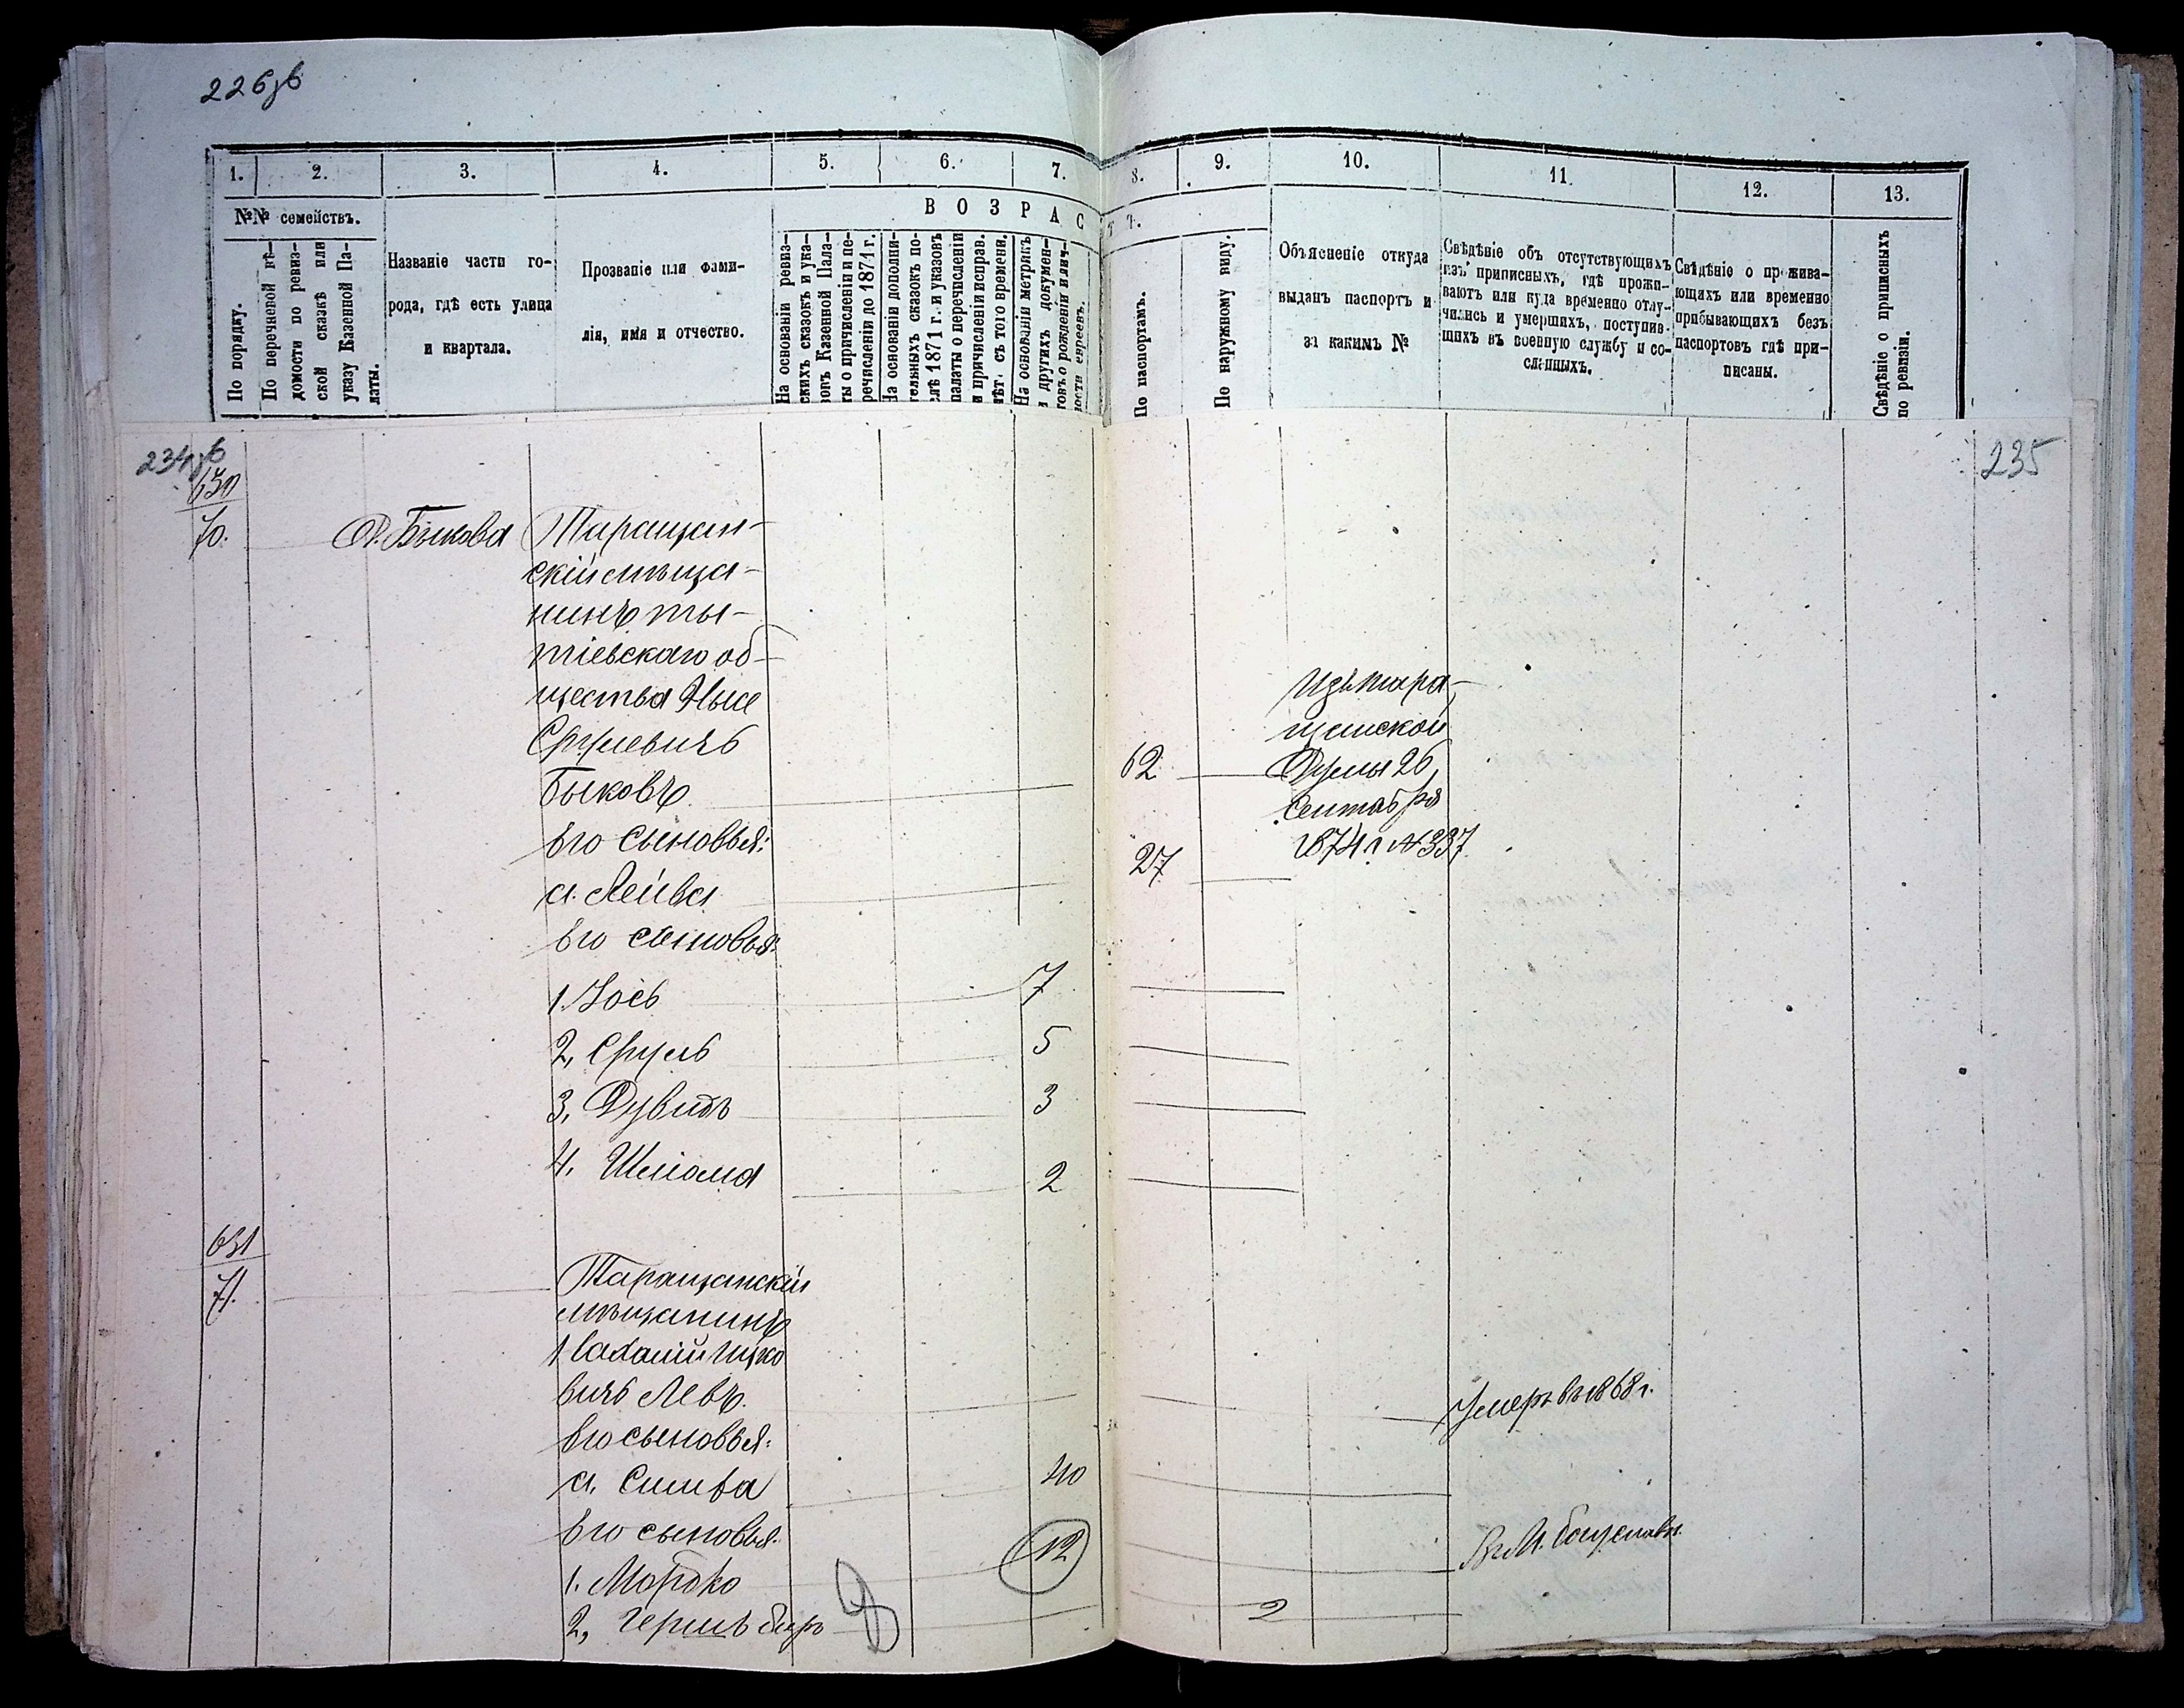 226об
1.
2.
3.
4.
5.
6.
7.
8.
9.
10.
11.
12.
13.
№№ семействъ.
ВОЗРАС
Т.
По порядку.
По перечневой вѣ-
домости по ревиз-
ской сказкѣ или
указу Казенной Па-
латы.
Названіе части го-
рода, гдѣ есть улица
и квартала.
Прозваніе или фами-
лія, имя и отчество.
На основаніи ревиз-
скихъ сказокъ и ука-
зовъ Казенной Пала-
ты о причисленіи и пе-
речисленіи до 1871 г.
На основаніи дополни-
тельныхъ сказокъ по-
слѣ 1871 г. и указовъ
палаты о перечисленіи
и причисленіи исправ.
лѣт. съ того времени.
На основаніи метрикъ
и другихъ докумен-
товъ о рожденіи и лич-
ности евреевъ.
По паспортамъ.
По наружному виду.
Объясненіе откуда
выданъ паспортъ и
за какимъ №
Свѣдѣніе объ отсутствующихъ
изъ приписныхъ, гдѣ прожи-
ваютъ или куда временно отлу-
чились и умершихъ, поступив-
шихъ въ военную службу и со-
сланныхъ.
Свѣдѣніе о прожива-
ющихъ или временно
прибывающихъ безъ
паспортовъ гдѣ при-
писаны.
Свѣдѣніе о приписныхъ
по ревизіи.
234об
235
630
70.
Д. Быкова
Таращан-
скій мѣща-
нинъ ты-
тіевскаго об-
щества
Срулевичъ
Быковъ
62
Изъ тара-
щанской
Думы 26
Сентября
1874 г №337
Его сыновья:
а. Лейба
27
Его сыновья:
1. Іось
7
2, Сруль
5
3, Дувидъ
3
4, Шліома
2
631
71.
Таращанскій
мѣщанинъ
Ицко
вичъ Левъ.
Умеръ въ 1868 г.
Его сыновья:
а. Симха
40
Его сыновья:
1. Мордко
12
Въ М. Богуславѣ.
2, Гершъ Беръ
2